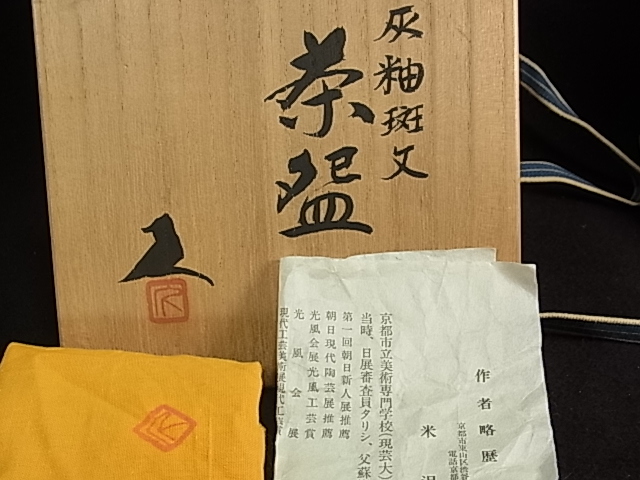 灰釉斑文
茶盌
作者略歴
京都市東山区
電話京都
米沢
京都市立美術専門学校(現芸大)
当時、日展審査員タリシ、父蘇
第一回朝日新人展推薦
朝日現代陶芸展推薦
光風会展光風工芸賞
光風会展
現代工芸美術展現代工芸賞